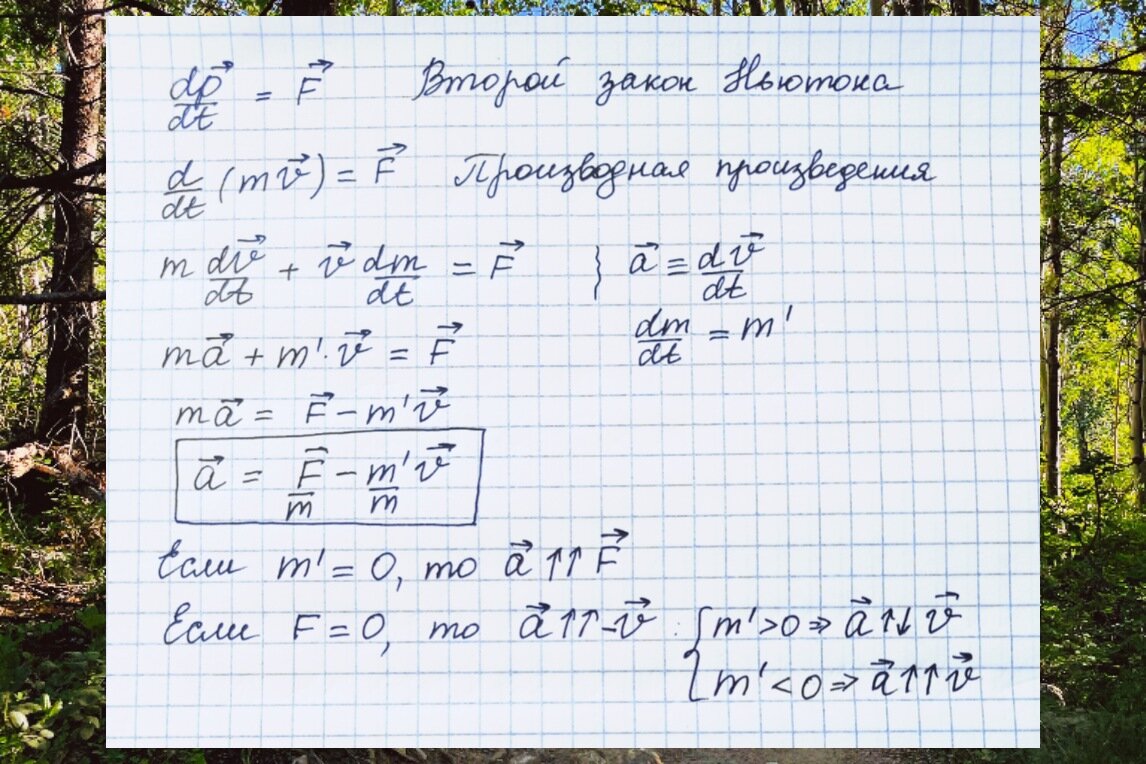 dp⃗/dt = F⃗ Второй закон Ньютона
d/dt (mv⃗) = F⃗ Производная произведения
m dv⃗/dt + v⃗ dm/dt = F⃗ } a⃗ ≡ dv⃗/dt
dm/dt = m'
ma⃗ + m'·v⃗ = F⃗
ma⃗ = F⃗ − m'v⃗
a⃗ = F⃗/m − m'/m v⃗
Если m' = 0, то a⃗ ↑↑ F⃗
Если F = 0, то a⃗ ↑↑ -v⃗ : { m' > 0 ⇒ a⃗ ↑↓ v⃗
m' < 0 ⇒ a⃗ ↑↑ v⃗